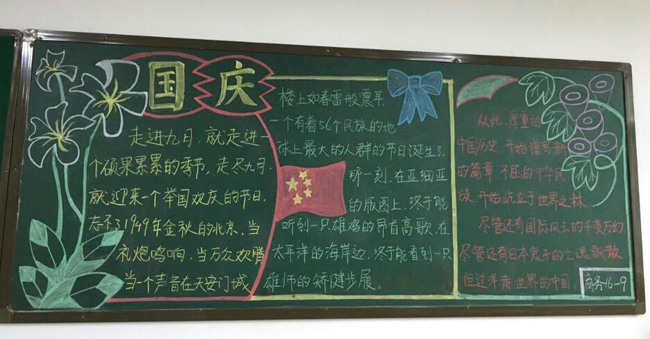 国庆
走进九月,就走进一
个硕果累累的季节。走尽九月,
就迎来一个举国欢庆的节日。
忘不了1949年金秋的北京,当
礼炮鸣响,当万众欢腾
当一个声音在天安门城
楼上如春雷般震耳,
一个有着56个民族的地
球上最大的人群的节日诞生了。
那一刻,在亚细亚
的版图上,终于能
听到一只雄鸡的昂首高歌,在
太平洋的海岸边,终于能看到一只
雄师的矫健步履。
从此,厚重的
中国历史 开始谱写新
的篇章 不屈的中华民
族,开始屹立于世界之林
尽管还有国际风云的千变万幻
尽管还有日本鬼子的
但这洋 是世界的中国,
商务16-9